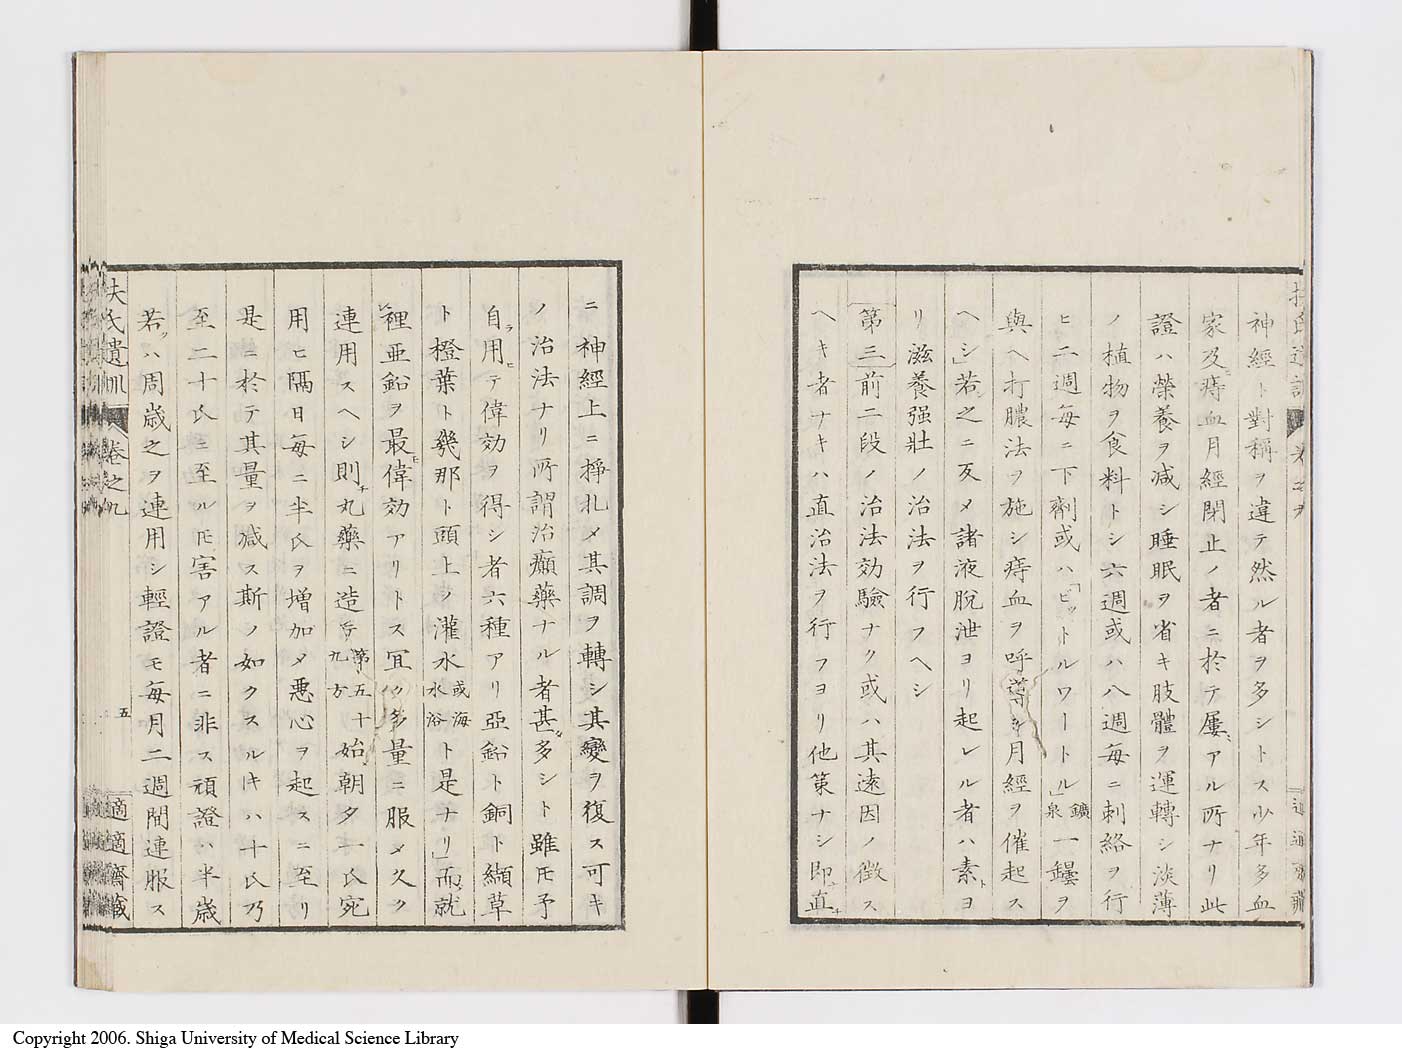 神經ト對稱ヲ違テ然ル者ヲ多シトス少年多血
家及ヒ痔血月經閉止ノ者ニ於テ屢〻アル所ナリ此
證ハ榮養ヲ減シ睡眠ヲ省キ肢體ヲ運轉シ淡薄
ノ植物ヲ食料トシ六週或ハ八週每ニ刺絡ヲ行
ヒ二週每ニ下劑或ハ「ピットルワートル」鑛泉一鏝ヲ
與ヘ打膿法ヲ施シ痔血ヲ呼導シ月經ヲ催起ス
ヘシ」若シ之ニ反メ諸液脫泄ヨリ起レル者ハ素トヨ
リ滋養强壯ノ治法ヲ行フヘシ
第三前二段ノ治法効驗ナク或ハ其遠因ノ徵ス
ヘキ者ナキハ直治法ヲ行フヨリ他策ナシ即チ直チ
ニ神經上ニ掙扎メ其調ヲ轉シ其變ヲ復ス可キ
ノ治法ナリ所謂治癲藥ナル者甚タ多シト雖𪜈予
自ラ用ヒテ偉効ヲ得シ者六種アリ亞鉛ト銅ト纈草
ト橙葉ト幾那ト頭上ノ灌水或海水浴ト是ナリ」而就
裡亞鉛ヲ最モ偉効アリトス冝ク多量ニ服メ久ク
連用スヘシ則チ丸藥ニ造テ第五十九方始朝夕一氏宛
用ヒ隔日每ニ半氏ヲ增加メ惡心ヲ起スニ至リ
是ニ於テ其量ヲ減ス斯ノ如クスルキハ十氏乃
至二十氏ニ至ル𪜈害アル者ニ非ス頑證ハ半歲
若クハ周歲之ヲ連用シ輕證モ每月二週間連服ス
扶氏遺訓 卷之九 五 適適齋藏